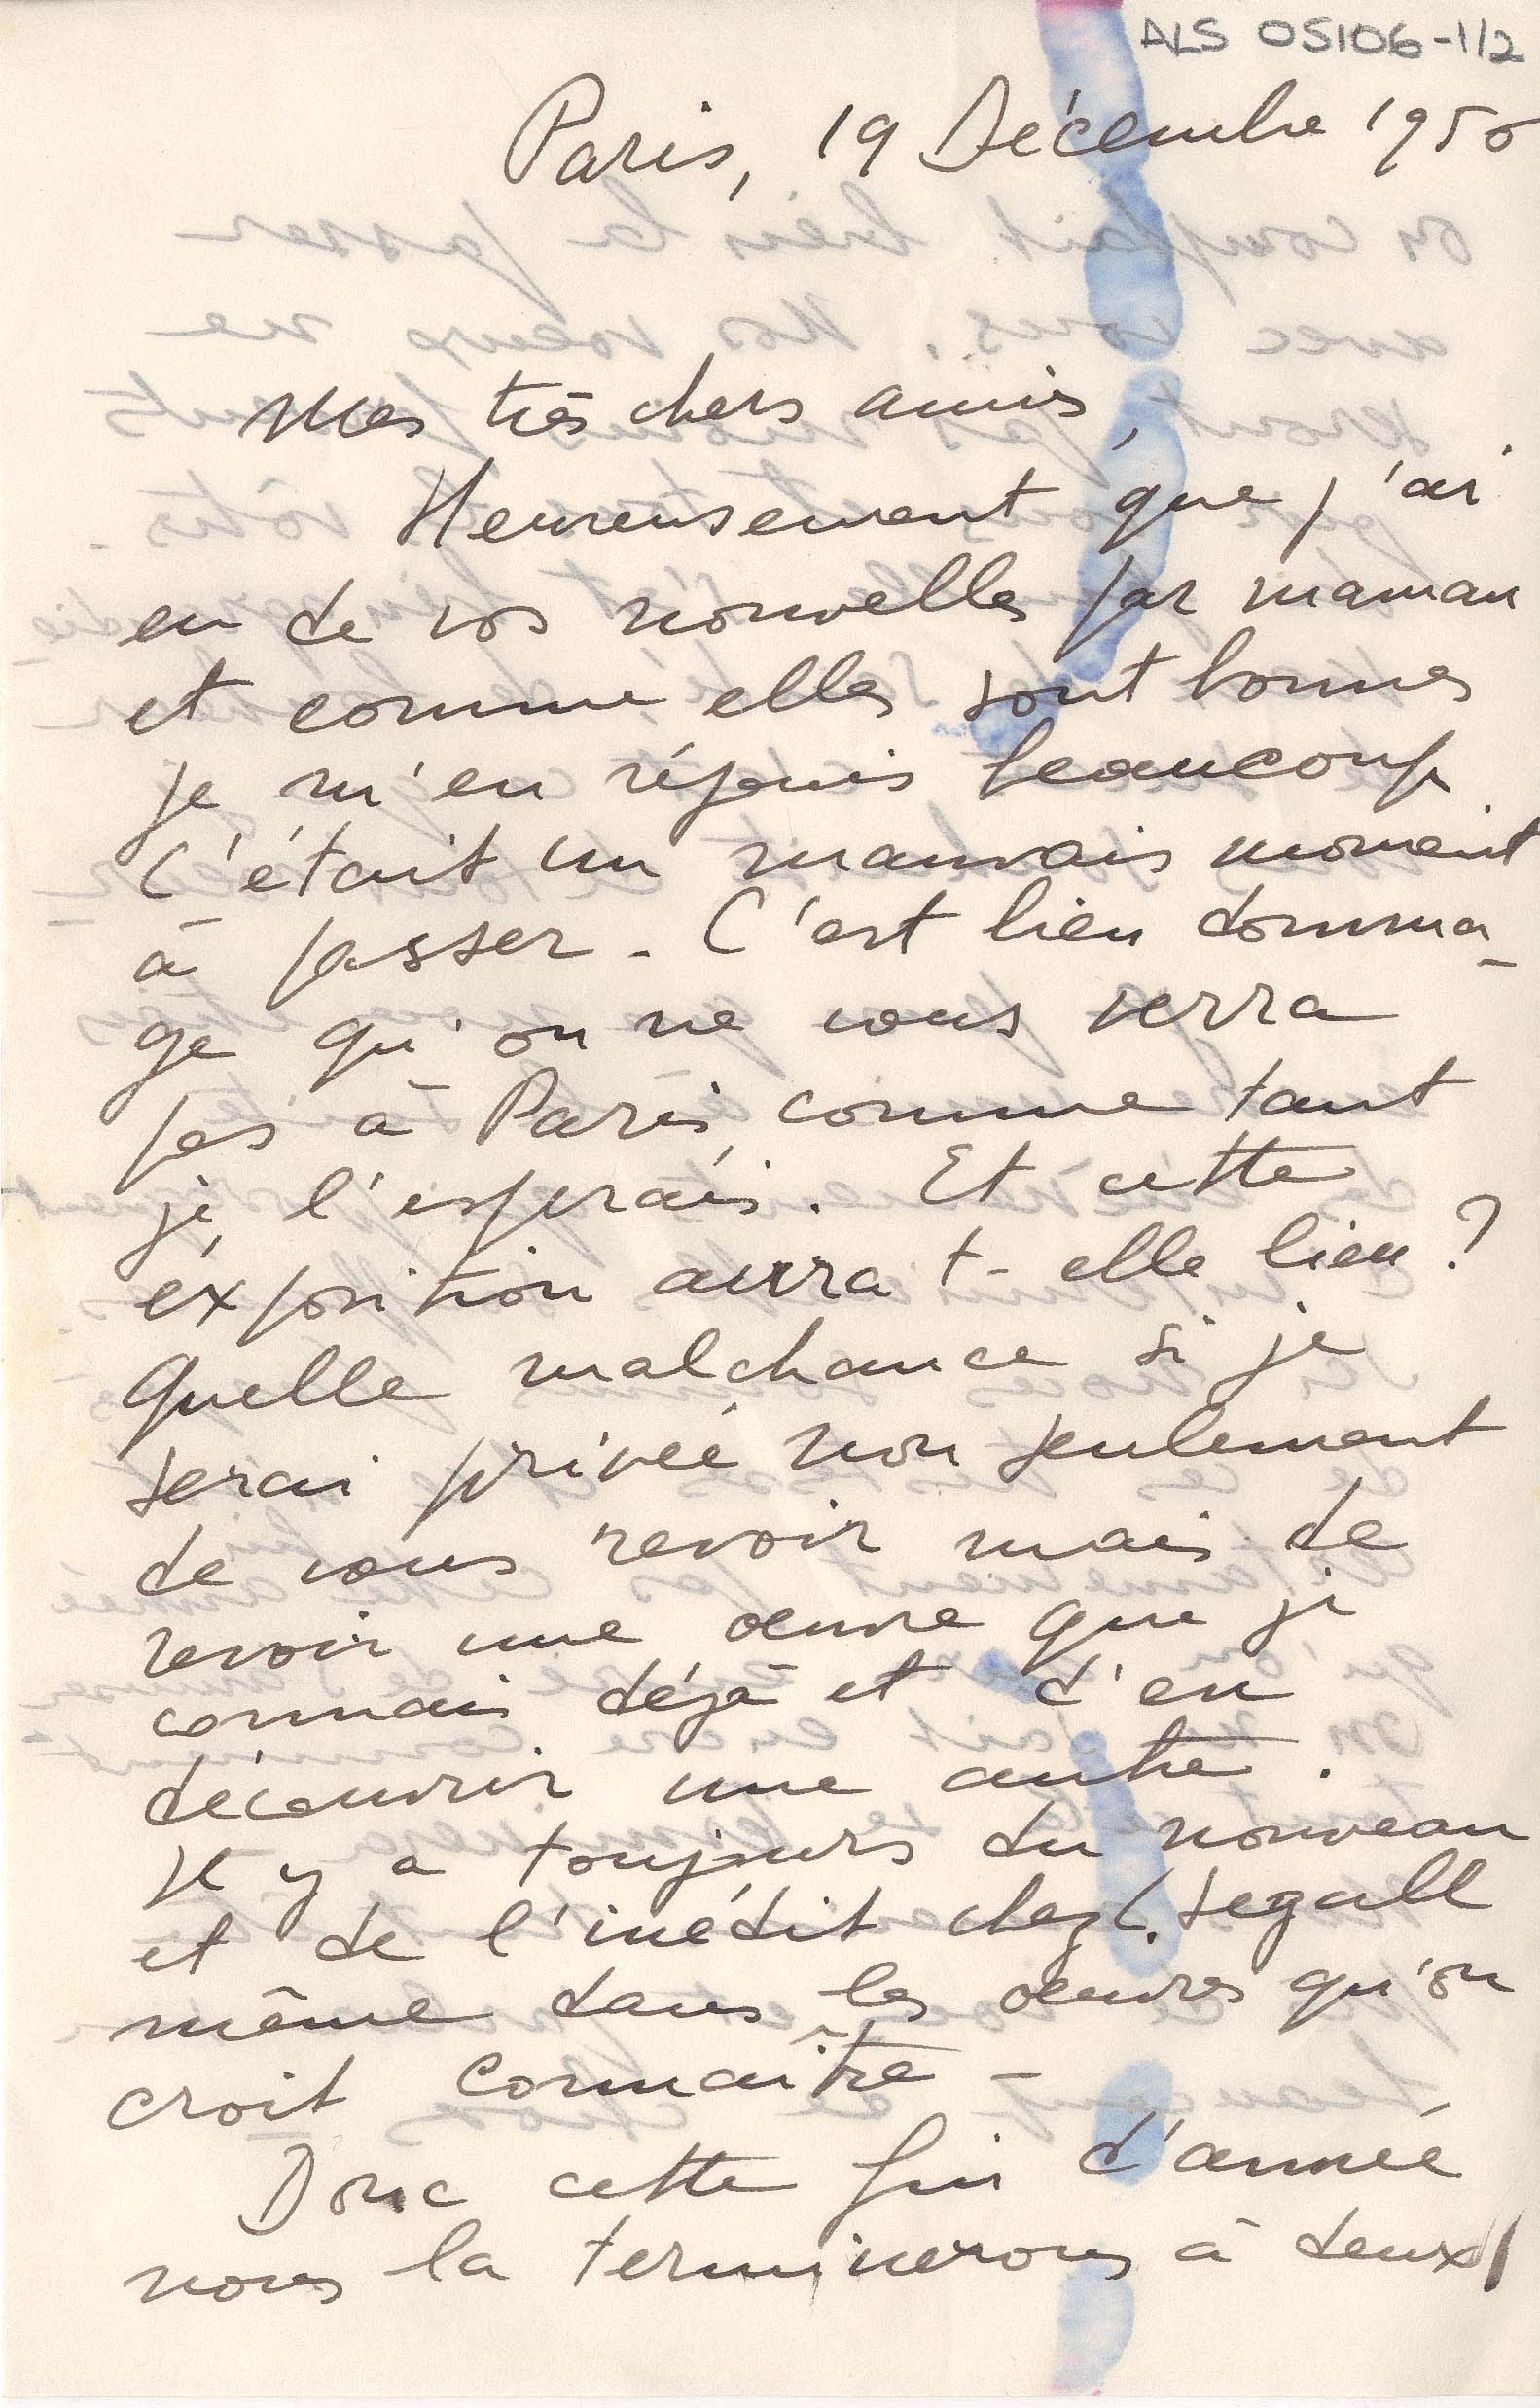 ALS 05106-1/2
Paris, 19 Décembre 1950
Mes très chers amis,
Heureusement que j'ai
eu de vos nouvelles par maman
et comme elles sont bonnes
je m'en réjouis beaucoup.
C'était un mauvais moment
à passer - C'est bien domma-
ge qu'on ne vous verra
pas à Paris, comme tant
je l'esperais. Et cette
éxposition aurra t-elle lieu ?
Quelle malchance si je
serai privée non seulement
de vous revoir mais de
revoir une oeuvre que je
connais déjà et d'en
découvrir une autre.
Il y a toujours du nouveau
et de l'inédit chez L. Segall
même dans les oeuvres qu'on
croit connaître -
Donc cette fin d'année
nous la terminerons à deux